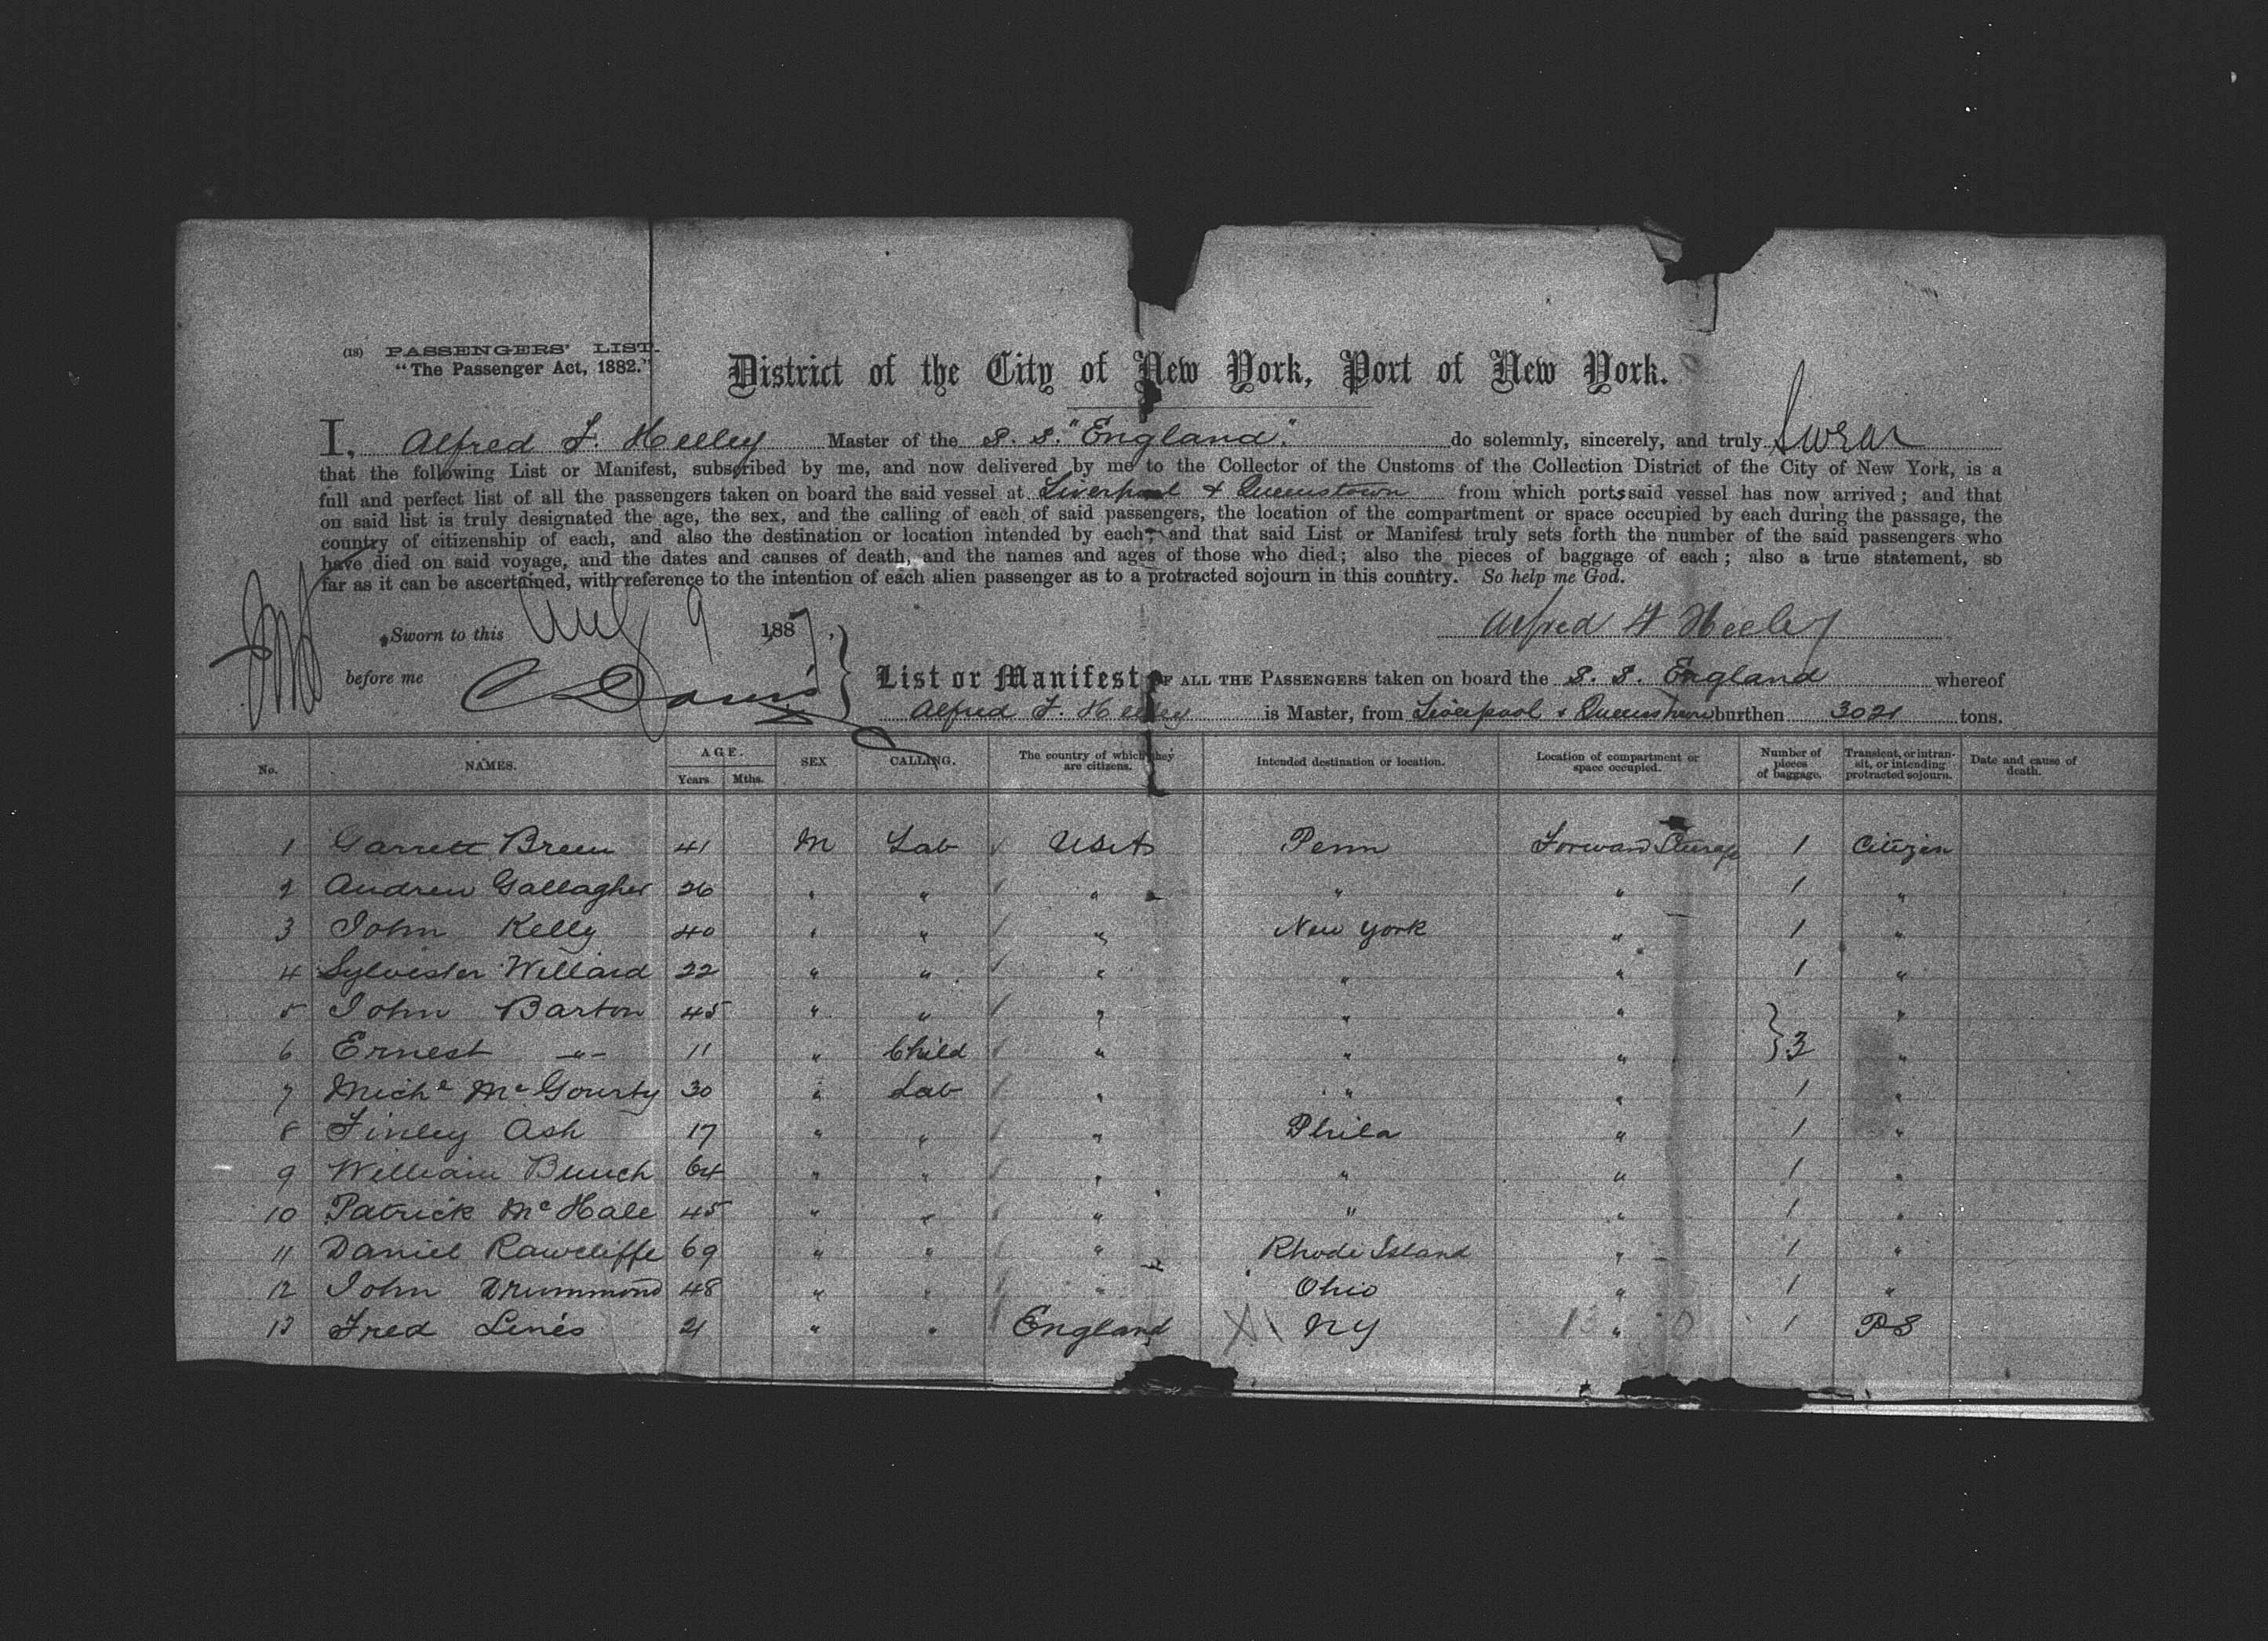 (18) PASSENGERS' LIST.
"The Passenger Act, 1882."
District of the City of New York, Port of New York.
I, Alfred F. Heeley Master of the S. S. "England". do solemnly, sincerely, and truly Swear
that the following List or Manifest, subscribed by me, and now delivered by me to the Collector of the Customs of the Collection District of the City of New York, is a
full and perfect list of all the passengers taken on board the said vessel at Liverpool & Queenstown from which ports said vessel has now arrived; and that
on said list is truly designated the age, the sex, and the calling of each of said passengers, the location of the compartment or space occupied by each during the passage, the
country of citizenship of each, and also the destination or location intended by each; and that said List or Manifest truly sets forth the number of the said passengers who
have died on said voyage, and the dates and causes of death, and the names and ages of those who died; also the pieces of baggage of each; also a true statement, so
far as it can be ascertained, with reference to the intention of each alien passenger as to a protracted sojourn in this country. So help me God.
Sworn to this Aug 9 1887,
Alfred F Heeley
before me
List or Manifest OF ALL THE PASSENGERS taken on board the S. S. England whereof
Alfred F. Heeley is Master, from Liverpool & Queenstown burthen 3021 tons.
No. NAMES. AGE. Years Mths. SEX CALLING. The country of which they are citizens. Intended destination or location. Location of compartment or space occupied. Number of pieces of baggage. Transient, or intransit, or intending protracted sojourn. Date and cause of death.
1 Garrett Breen 41 M Lab USA Penn Forward Steerage 1 Citizen
2 Andrew Gallagher 26 " " " " " 1 "
3 John Kelly 40 " " " New York " 1 "
4 Sylvester Willard 22 " " " " " 1 "
5 John Barton 45 " " " " " "
6 Ernest -"- 11 " Child " " " } 3 "
7 Miche McGourty 30 " Lab " " " 1 "
8 Finley Ash 17 " " " Phila " 1 "
9 William Bunch 64 " " " " " 1 "
10 Patrick McHale 45 " " " " " 1 "
11 Daniel Rawcliffe 69 " " " Rhode Island " 1 "
12 John Drummond 48 " " " Ohio " 1 "
13 Fred Lines 21 " " England NY " 1 PS